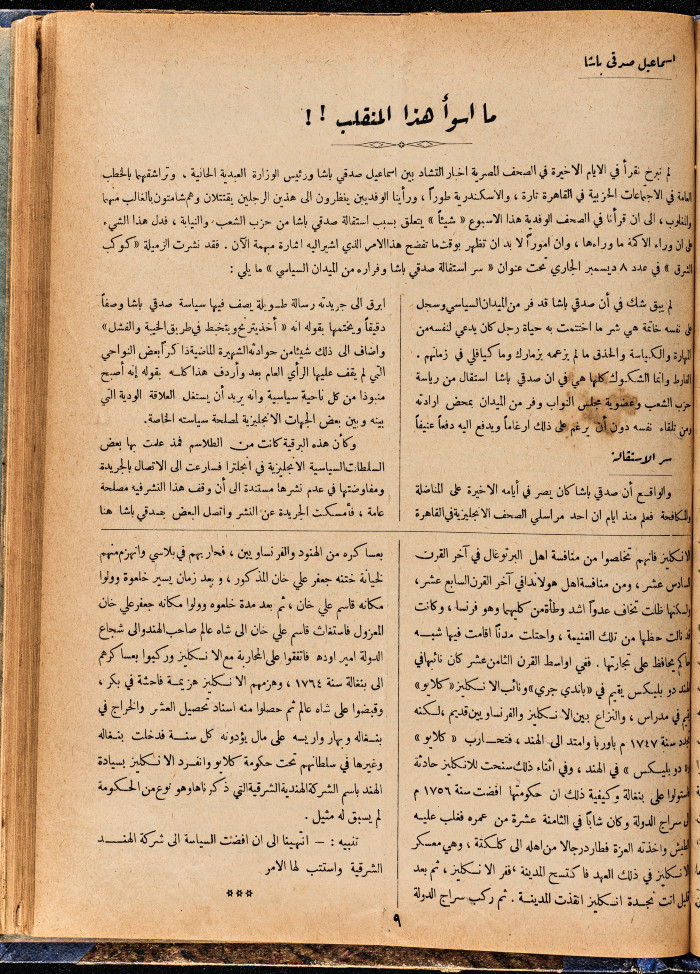 اسماعيل صدقي باشا
ما اسوأ هذا المنقلب !!
لم نبرح نقرأ في الايام الاخيرة في الصحف المصرية اخبار التشاد بين اسماعيل صدقي باشا ورئيس الوزارة العبدية الحالية ، وتراشقهما بالخطب
العامة في الاجتماعات الحزبية في القاهرة تارة ، والاسكندرية طوراً ، ورأينا الوفديين ينظرون الى هذين الرجلين يقتتلان وهم شامتون بالغالب منهما
والمغلوب ، الى ان قرأنا في الصحف الوفدية هذا الاسبوع « شيئاً » يتعلق بسبب استقالة صدقي باشا من حزب الشعب والنيابة ، فدل هذا الشيء
على ان وراء الاكمة ما وراءها ، وان اموراً لا بد ان تظهر بوقت ما تفضح هذا الامر الذي اشير اليه اشارة مبهمة الآن . فقد نشرت الزميلة « كوكب
الشرق » في عدد ٨ ديسمبر الجاري تحت عنوان « سر استقالة صدقي باشا وفراره من الميدان السياسي » ما يلي :
لم يبق شك في أن صدقي باشا قد فر من الميدان السياسي وسجل
على نفسه خاتمة هي شر ما اختتمت به حياة رجل كان يدعي لنفسه من
المهارة والكياسة والحذق ما لم يزعمه بزمارك وما كيافلي في زمانهم .
الفارط وانما الشكوك كلها هي في ان صدقي باشا استقال من رياسة
حزب الشعب وعضوية مجلس النواب وفر من الميدان بمحض ارادته
ومن تلقاء نفسه دون أن يرغم على ذلك ارغاماً ويدفع اليه دفعاً عنيفاً
سر الاستقالة
والواقع أن صدقي باشا كان يصر في أيامه الاخيرة على المناضلة
والمكافحة فعلم منذ ايام ان احد مراسلي الصحف الانجليزية في القاهرة
ابرق الى جريدته رسالة طويلة يصف فيها سياسة صدقي باشا وصفاً
دقيقاً ويختمها بقوله انه « أخذ يترنح ويتخبط في طريق الخيبة والفشل »
واضاف الى ذلك شيئاً من حوادثه الشهيرة الماضية ذاكراً بعض النواحي
التي لم يقف عليها الرأي العام بعد وأردف هذا كله بقوله إنه أصبح
منبوذا من كل ناحية سياسية وانه يريد أن يستغل العلاقة الودية التي
بينه وبين بعض الجهات الانجليزية لمصلحة سياسته الخاصة .
وكأن هذه البرقية كانت من الطلاسم فمذ علمت بها بعض
السلطات السياسية الانجليزية في انجلترا فسارعت الى الاتصال بالجريدة
ومفاوضتها في عدم نشرها مستندة الى أن وقف هذا النشر فيه مصلحة
عامة ، فأمسكت الجريدة عن النشر واتصل البعض بصدقي باشا هنا
الانكليز فانهم تخلصوا من منافسة اهل البرتوغال في آخر القرن
السادس عشر ، ومن منافسة اهل هولاندا في آخر القرن السابع عشر ،
ولكنها ظلت تخاف عدواً اشد وطأة من كليهما وهو فرنسا ، وكانت
قد نالت حظها من تلك الغنيمة ، واحتلت مدناً اقامت فيها شبه
حاكم يحافظ على تجارتها . ففي اواسط القرن الثامن عشر كان نائبها في
الهند دو بليكس يقيم في « باندي جري » ونائب الانكليز « كلايو »
يقيم في مدراس ، والنزاع بين الانكليز والفرنساويين قديم ، لكنه
تجدد سنة ١٧٤٧ م باوربا وامتد الى الهند ، فتحارب « كلايو »
و« دو بليكس » في الهند ، وفي اثناء ذلك سنحت للانكليز حادثة
استولوا على بنغالة وكيفية ذلك ان حكومتها افضت سنة ١٧٥٦ م
الى سراج الدولة وكان شاباً في الثامنة عشرة من عمره فغلب عليه
الطيش واخذته العزة فطارد رجالا من اهله الى كلكتة ، وهي معسكر
الانكليز في ذلك العهد فاكتسح المدينة ، ففر الانكليز ، ثم بعد
قليل اتت نجدة انكليز انقذت المدينة . ثم ركب سراج الدولة
بعساكره من الهنود والفرنساويين ، فحاربهم في بلاسي وانهزم منهم
لخيانة ختنه جعفر علي خان المذكور ، وبعد زمان يسير خلعوه وولوا
مكانه قاسم علي خان ، ثم بعد مدة خلعوه وولوا مكانه جعفر علي خان
المعزول فاستغاث قاسم علي خان الى شاه عالم صاحب الهند والى شجاع
الدولة امير اوده فاتفقوا على المحاربة مع الانكليز وركبوا بعساكرهم
الى بنغالة سنة ١٧٦٤ ، وهزمهم الانكليز هزيمة فاحشة في بكر ،
وقبضوا على شاه عالم ثم حصلوا منه اسناد تحصيل العشر والخراج في
بنغاله وبهار واريسه على مال يؤدونه كل سنة فدخلت بنغاله
وغيرها في سلطانهم تحت حكومة كلايو وانفرد الانكليز بسيادة
الهند باسم الشركة الهندية الشرقية التي ذكرناها وهو نوع من الحكومة
لم يسبق له مثيل .
تنبيه : — انتهينا الى ان افضت السياسة الى شركة الهند
الشرقية واستتب لها الامر
***
٩